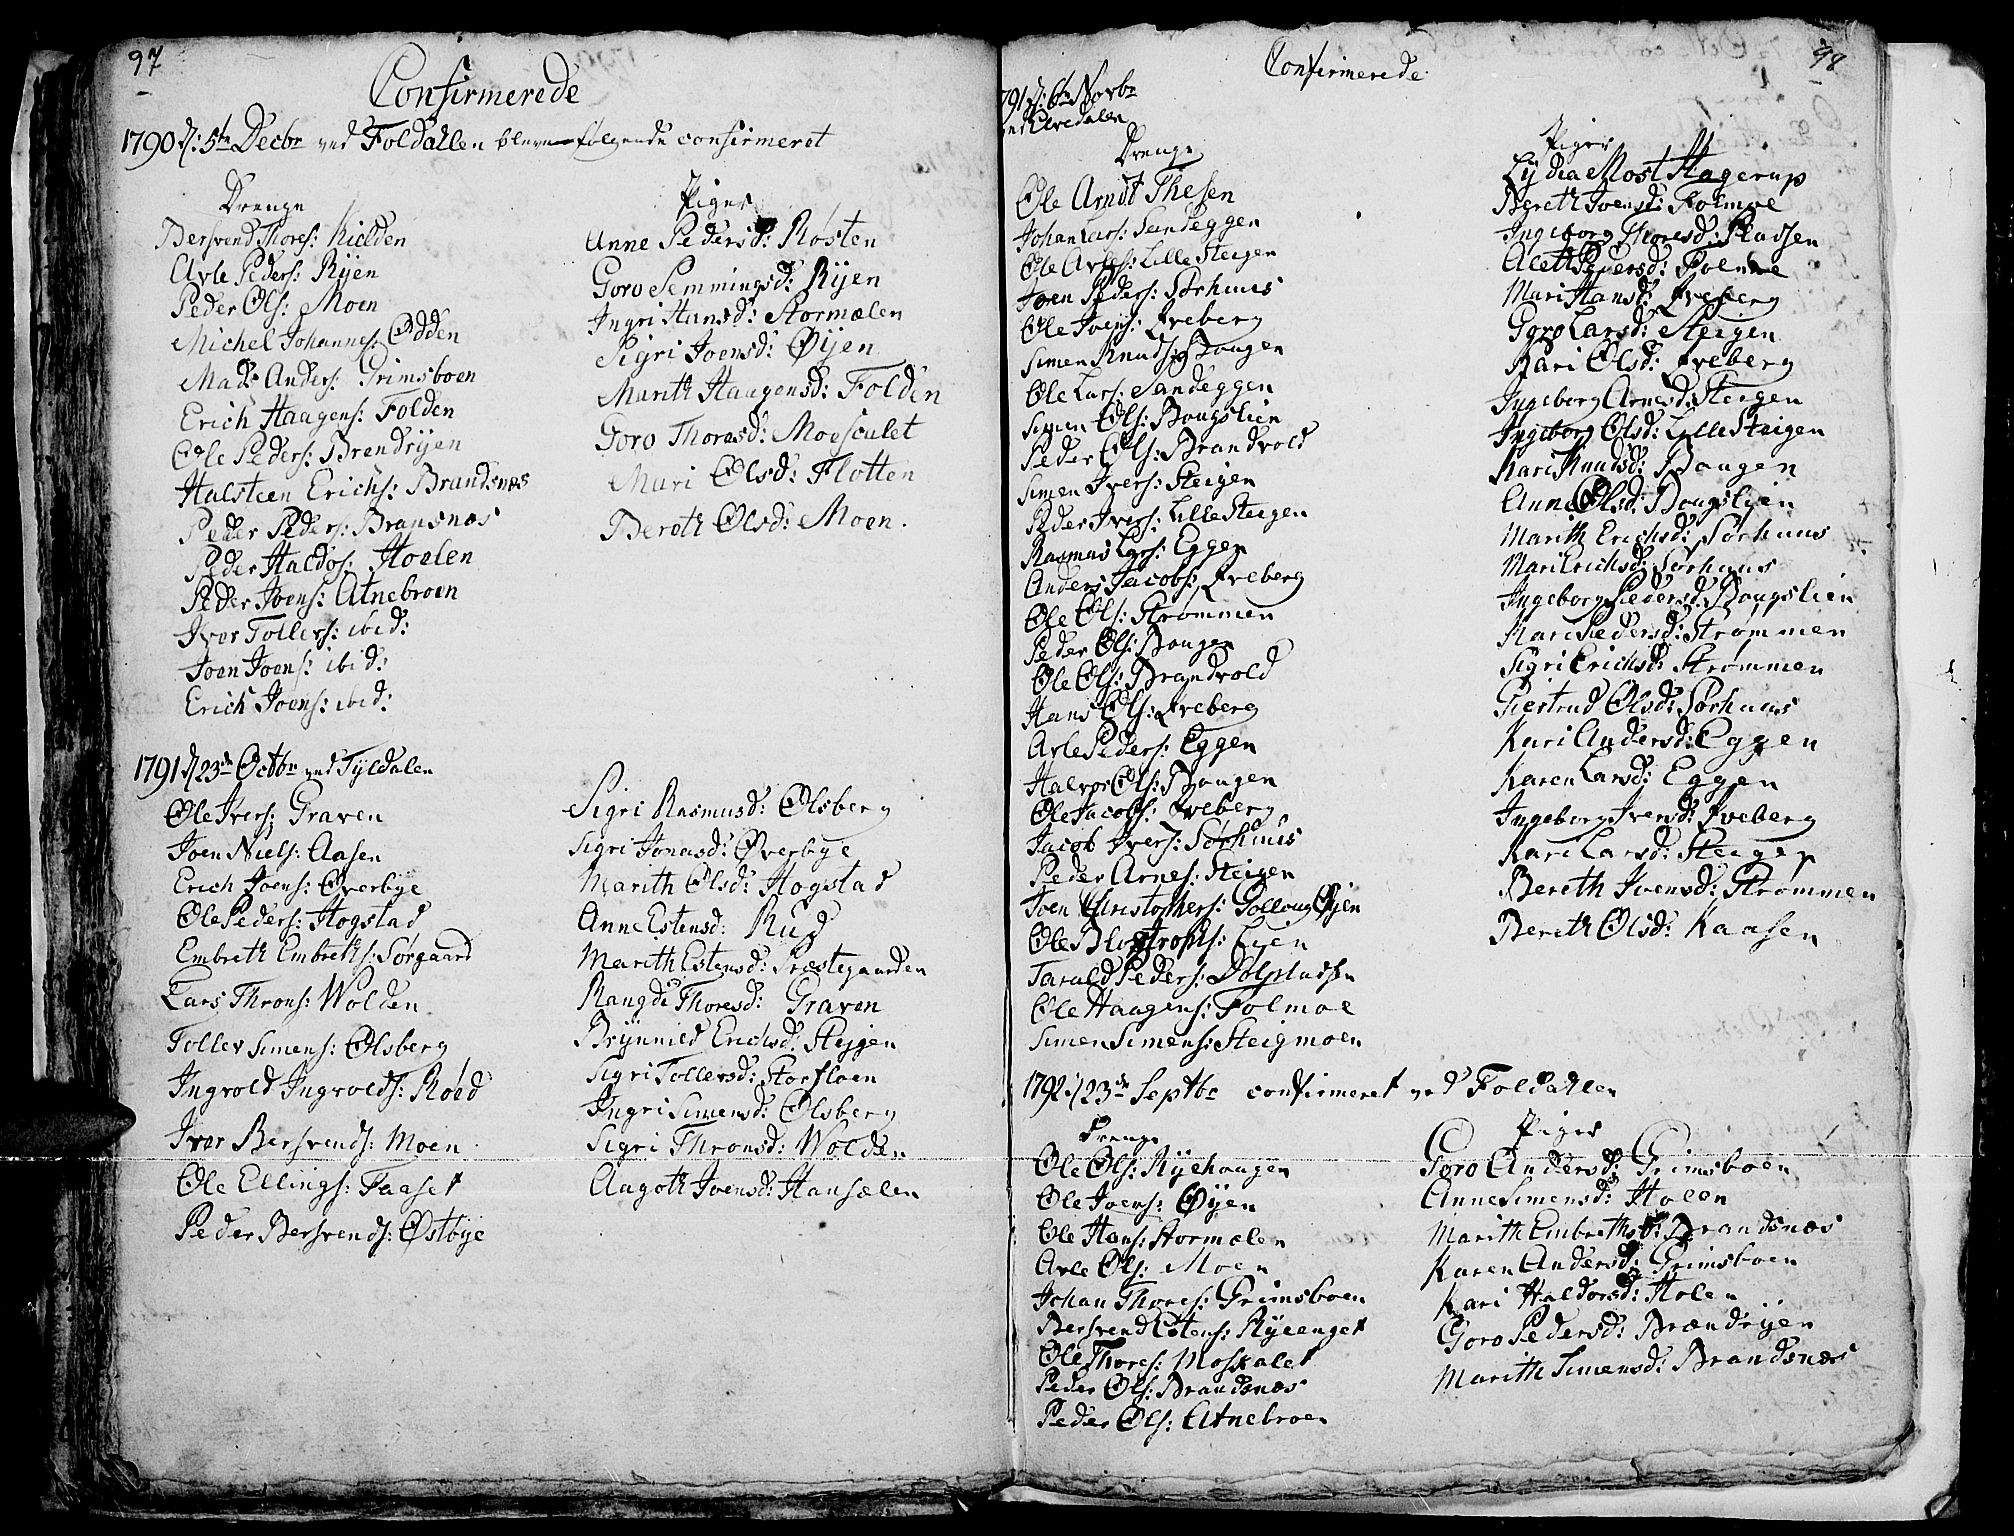 97
Confirmerede
1790 d: 5te Decbr ved Foldahlen bleve følgende confirmeret
Drenge
Bersvend Thores: Kielden
Arle Peders: Ryen
Peder Ols: Moen
Michel Johannes: Odden
Mads Anders: Grimsboen
Erich Haagens: Folden
Ole Peders: Brendryen
Halsteen Erichs: Brandsnæs
Peder Peders: Bransnæs
Peder Haldos: Hoelen
Peder Joens: Atnebroen
Iver Tollers: ibid:
Joen Joens: ibid:
Erich Joens: ibid:
Piger
Anne Pedersd: Rosten
Goro Semmingsd: Ryen
Ingri Hansd: Stormælen
Sigri Joensd: Øyen
Marith Haagensd: Folden
Goro Thoresd: Moesculet
Mari Olsd: Flotten
Bereth Olsd: Moen.
1791 d 23de Octbr ved Tyldalen
Ole Ivers: Graven
Joen Niels: Aasen
Erich Joens: Øverbye
Ole Peders: Hogstad
Embreth Embreths: Sørgaard
Lars Throns: Wolden
Toller Simens: Olsberg
Ingvold Ingvolds: Roed
Iver Bersvends: Moen
Ole Ellings: Faaset
Peder Bersvends: Østbye
Sigri Rasmusd: Olsberg
Sigri Jonasd: Øverbye
Marith Olsd: Hogstad
Anne Estensd: Rud
Marith Estensd: Præstegaarden
Rangdi Thoresd: Graven
Brynnild Erichsd: Steggen
Sigri Tollersd: Storfloen
Ingri Simensd: Olsberg
Sigri Thronsd: Wolden
Aagoth Joensd: Hansælen
98
Confirmerede
791 d: 6te Novbr
ved Elvedalen
Drenge
Ole Arndt Thesen
Johan Lars: Sandeggen
Ole Arles: Lille Steigen
Joen Peders: Sørhuus
Ole Joens: Eveberg
Simen Knuds: Hougen
Ole Lars: Sandeggen
Simen Ols: Bougslien
Peder Ols: Brandvold
Simen Ivers: Steigen
Peder Ivers: Lille Steigen
Rasmus Lars: Eggen
Anders Jacobs: Eveberg
Ole Ols: Strømmen
Peder Ols: Hougen
Ole Ols: Brandvold
Hans Ols: Eveberg
Arle Peders: Eggen
Halvor Ols: Hougen
Ole Jacobs: Eveberg
Jacob Ivers: Sørhuus
Peder Arnes: Steigen
Joen Christophers: Øyen
Ole Egen
Tarald Peders:
Ole Haagens: Folmoe
Simen Simens: Steigmoen
Piger
Lydia Most Hagerup
Bereth Joensd: Folmoe
Ingeborg Thoresd: Pladsen
Aleth Pedersd:
Mari Hansd: Eveberg
Goro Larsd: Steigen
Kari Olsd: Eveberg
Ingeborg Arnesd: Steigen
Ingeborg Olsd: Lille Steigen
Kari Knudsd: Hougen
Anne Olsd: Bougslien
Marith Erichsd: Sørhuus
Mari Erichsd: Sørhuus
Ingeborg Pedersd: Bougslien
Mari Pedersd: Strømmen
Sigri Erichsd: Strømmen
Giertrud Olsd: Sørhuus
Kari Andersd: Eggen
Karen Larsd: Eggen
Ingeborg Iversd: Eveberg
Kari Larsd: Steigen
Bereth Ivensd: Strømmen
Bereth Olsd: Kaasen
1792. d 23de Septbr confirmeret ved Foldahlen
Drenge
Ole Ols: Ryehougen
Ole Joens: Øyen
Ole Hans: Stormælen
Arle Ols: Moen
Johan Thores: Grimsboen
Bersvend Estens: Ryeenget
Ole Thores: Moskalet
Peder Ols: Brandsnæs
Peder Ols: Atnebroen
Piger
Goro Andersd: Grimsboen
Anne Simensd: Holen
Marith Embrethsd: Brandsnæs
Karen Andersd: Grimsboen
Kari Haldorsd: Holen
Goro Pedersd: Brændryen
Marith Simensd: Brandsnæs